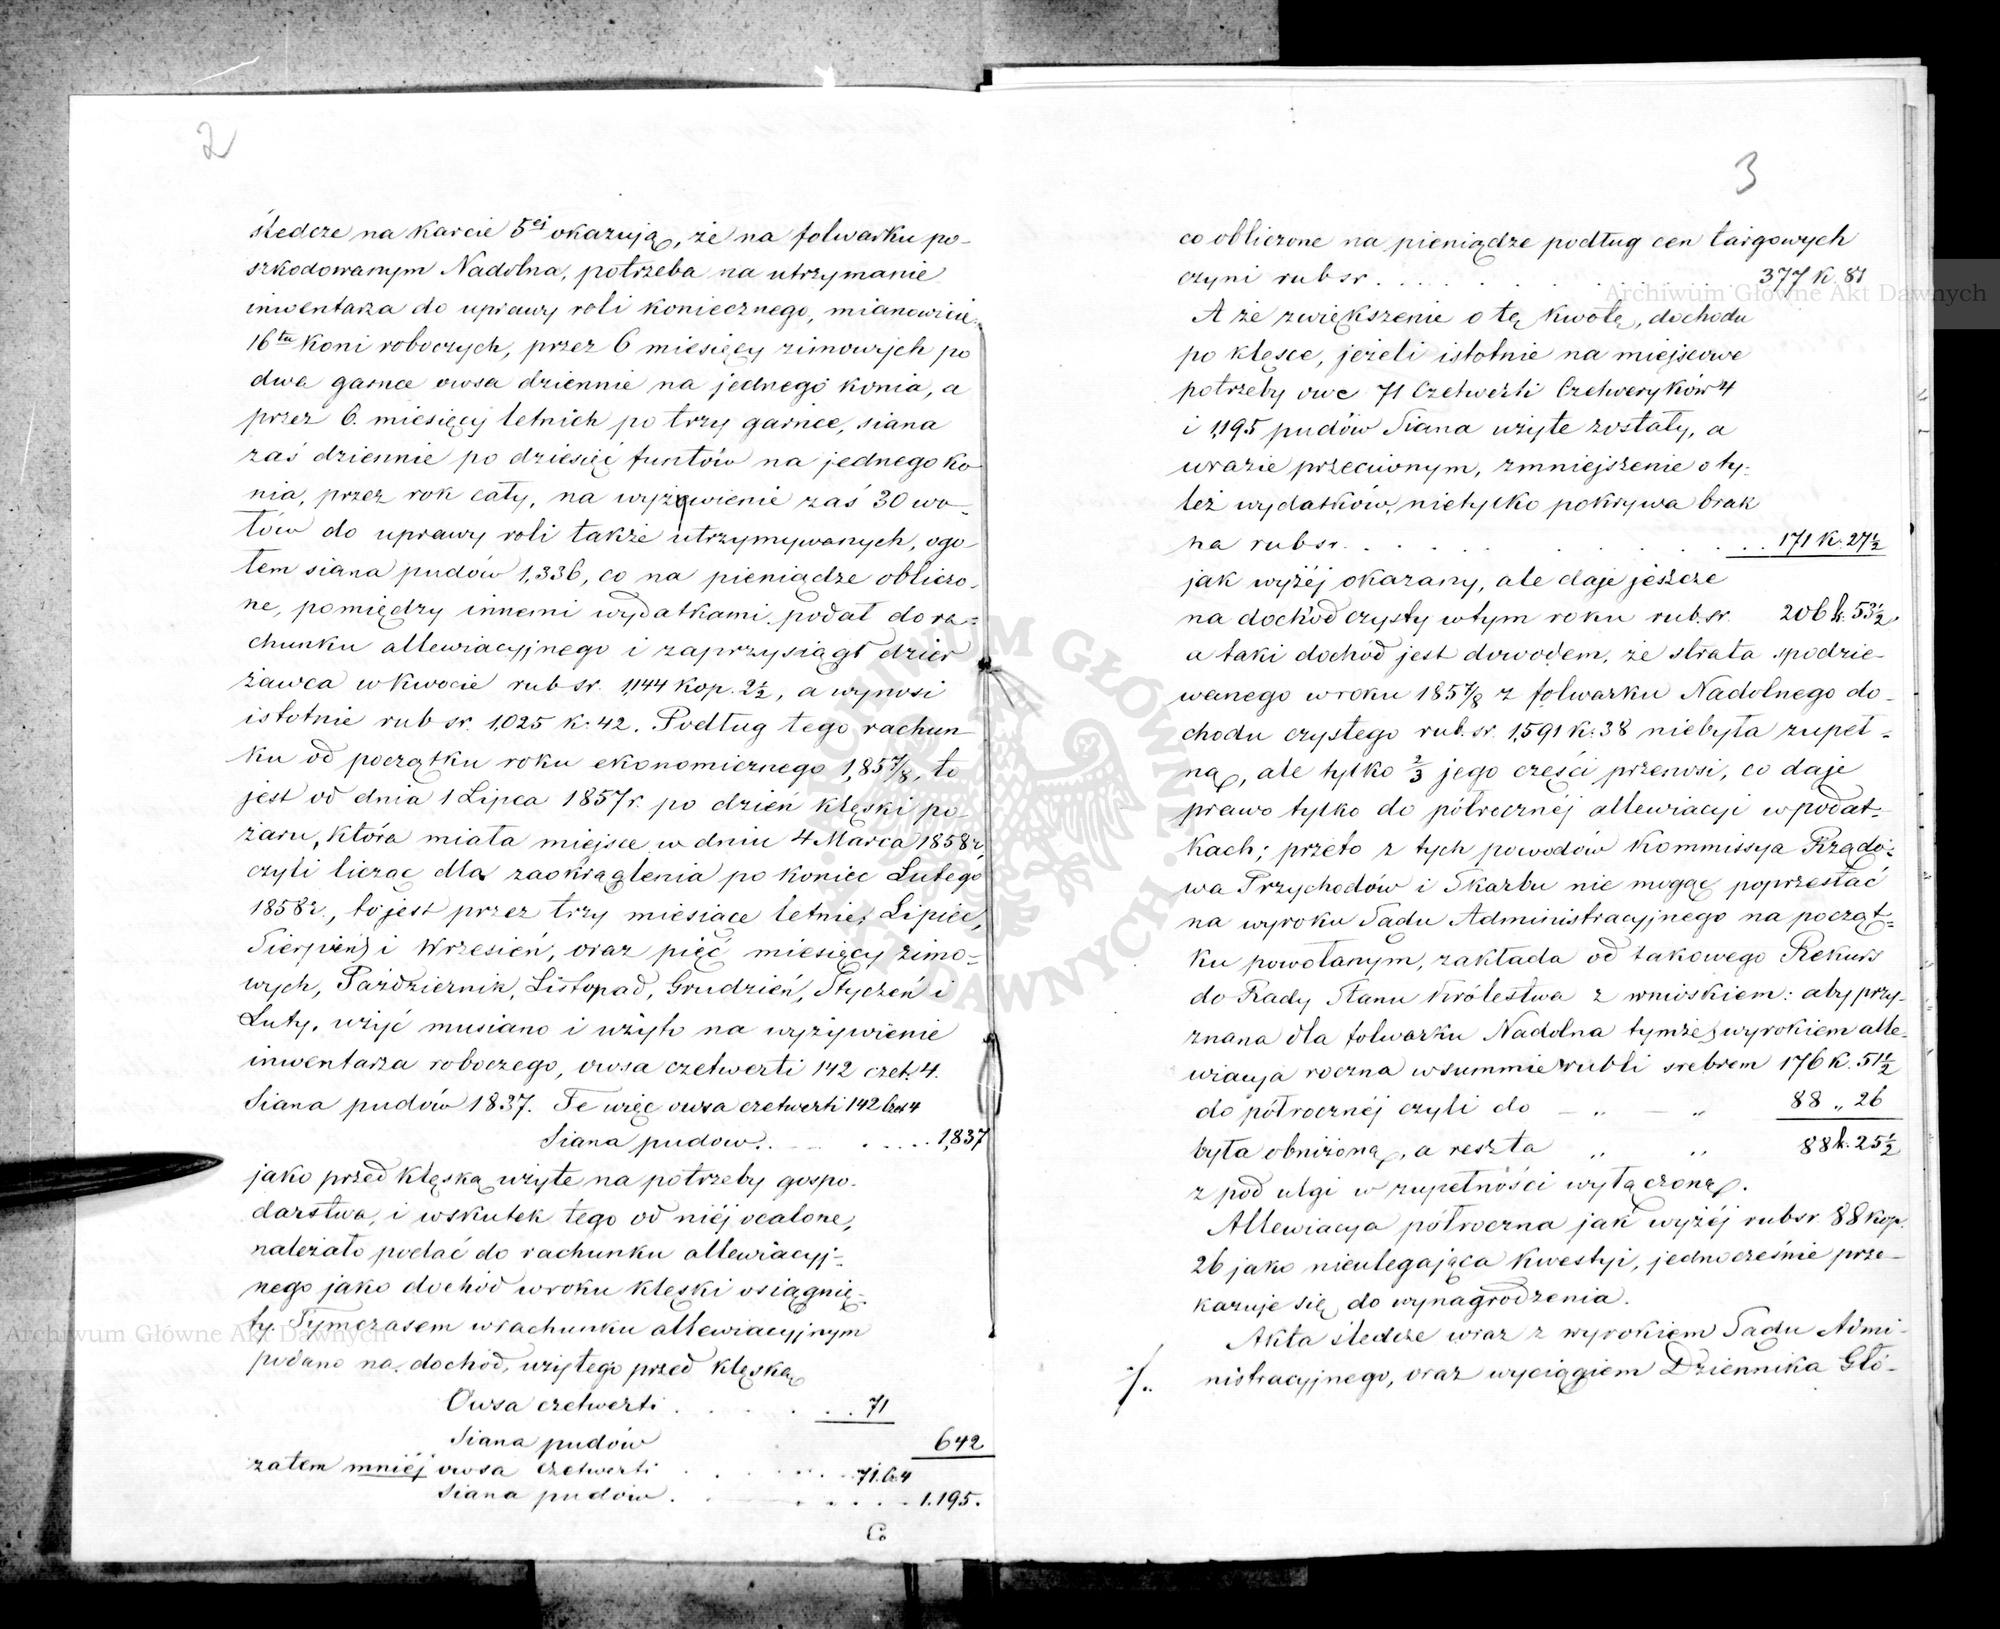 2
śledcze na karcie 5ej okazują, że na folwarku po-
szkodowanym Nadolna, potrzeba na utrzymanie
inwentarza do uprawy roli koniecznego, mianowicie
16tu koni roboczych, przez 6 miesięcy zimowych po
dwa garnce owsa dziennie na jednego konia, a
przez 6. miesięcy letnich po trzy garnce, siana
zaś dziennie po dziesięć funtów na jednego ko-
nia, przez rok cały, na wyżywienie zaś 30 wo-
łów do uprawy roli także utrzymywanych, ogó-
łem siana pudów 1,336, co na pieniądze obliczo-
ne, pomiędzy innemi wydatkami podał do ra-
chunku allewiacyjnego i zaprzysiągł dzier
żawca w kwocie rub sr. 1,144 kop. 2½, a wynosi
istotnie rub sr. 1,025 k. 42. Podług tego rachun-
ku od początku roku ekonomicznego 1,857/8, to
jest od dnia 1 Lipca 1857 r. po dzień klęski po-
żaru, która miała miejsce w dniu 4 Marca 1858 r,
czyli licząc dla zaokrąglenia po koniec Lutego
1858 r., to jest przez trzy miesiące letnie, Lipiec,
Sierpień i Wrzesień, oraz pięć miesięcy zimo-
wych, Październik, Listopad, Grudzień, Styczeń i
Luty, użyć musiano i użyto na wyżywienie
inwentarza roboczego, owsa czetwerti 142 czet. 4.
Siana pudów 1837. Te więc owsa czetwerti 142 czet 4
Siana pudów . . . . . . 1,837
jako przed klęską użyte na potrzeby gospo-
darstwa, i wskutek tego od niéj ocalone,
należało podać do rachunku allewiacyj-
nego jako dochód w roku klęski osiągnię-
ty. Tymczasem w rachunku allewiacyjnym
podano na dochód, użytego przed klęską
Owsa czetwerti . . . . . . 71
Siana pudów 642
zatem mniéj owsa czetwerti . . . . . 71. cz. 4
Siana pudów . . . . . . . 1.195.
Co
3
co obliczone na pieniądze podług cen targowych
czyni rub sr . . . . . . . . . 377 k. 81
A że zwiększenie o tę kwotę, dochodu
po klęsce, jeżeli istotnie na miejscowe
potrzeby owe 71 Czetwerti Czetweryków 4
i 1,195 pudów Siana użyte zostały, a
w razie przeciwnym, zmniejszenie o ty-
leż wydatków, nietylko pokrywa brak
na rub sr. . . . . . . . . 171 k. 27½
jak wyżéj okazany, ale daje jészcze
na dochód czysty w tym roku rub. sr. 206 k. 53½
a taki dochód jest dowodem, że strata spodzie-
wanego w roku 1857/8 z folwarku Nadolnego do-
chodu czystego rub. sr. 1,591 k. 38 niebyła zupeł-
ną, ale tylko ⅔ jego części przenosi, co daje
prawo tylko do półrocznéj allewiacyi w podat-
kach; przeto z tych powodów Kommissya Rządo-
wa Przychodów i Skarbu nie mogąc poprzestać
na wyroku Sądu Administracyjnego na począt-
ku powołanym, zakłada od takowego Rekurs
do Rady Stanu Królestwa z wnioskiem: aby przy-
znana dla folwarku Nadolna tymże wyrokiem alle-
wiacya roczna w summie rubli srebrem 176 k. 51½
do półrocznéj czyli do — „ — „ 88 „ 26
była obniżoną, a reszta „ „ 88 k. 25½
z pod ulgi w zupełności wyłączoną.
Allewiacya półroczna jak wyżéj rub sr. 88 kop.
26 jako nieulegająca kwestyi, jednocześnie prze-
kazuje się do wynagrodzenia.
Akta śledcze wraz z wyrokiem Sądu Admi-
nistracyjnego, oraz wyciągiem Dziennika Głó-
Archiwum Główne Akt Dawnych
Archiwum Główne Akt Dawnych
ARCHIWUM GŁÓWNE AKT DAWNYCH